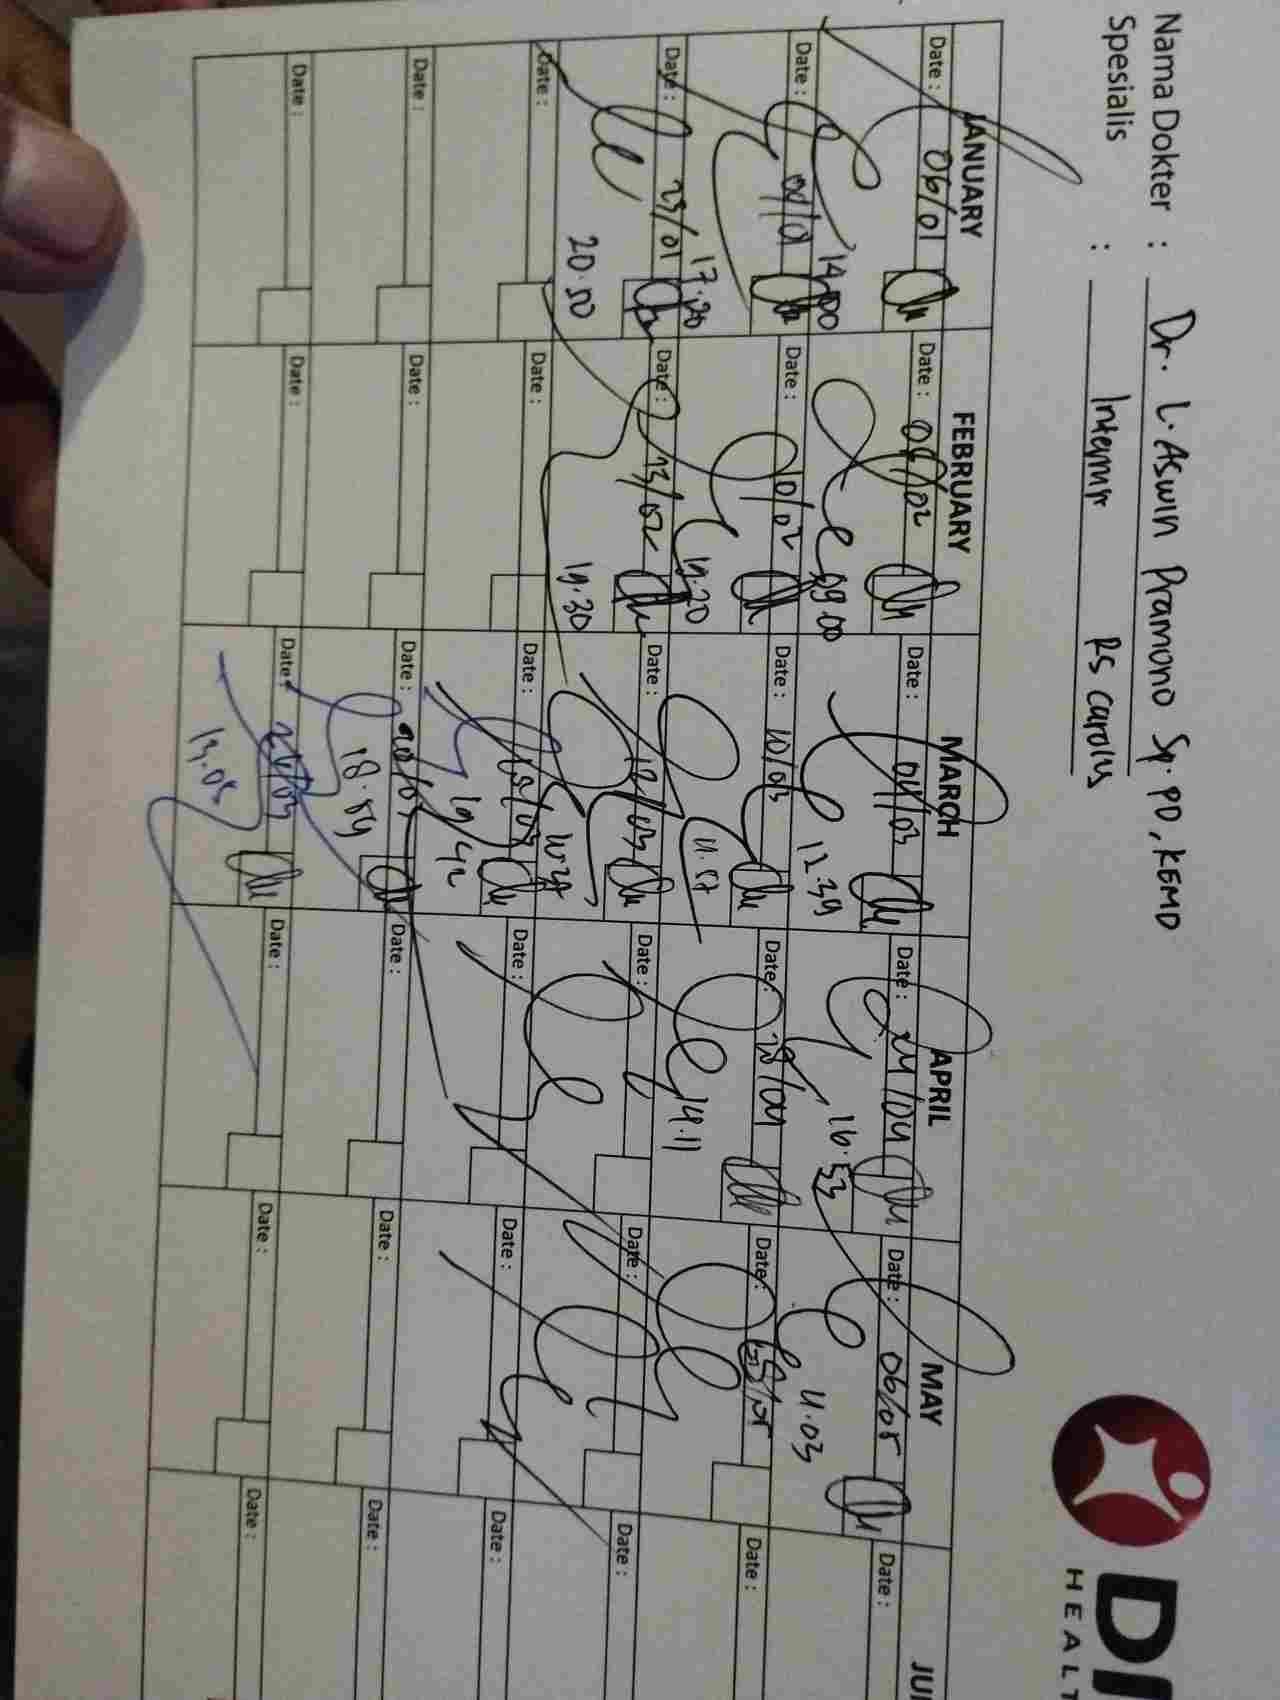 Nama Dokter : Dr. L. Aswin Pramono Sp. PD, KEMD
Spesialis : RS Carolus
DI
HEALT
JANUARY FEBRUARY MARCH APRIL MAY JU
Date : 06/01 Date : Date : 04/03 Date : 24/04 Date : 06/05 Date :
14.00 09.00 12.39 16.53 11.03
Date : 09/01 Date : 10/02 Date : 10/03 Date : 28/04 Date : Date :
17.20 19.20 11.57 14.11
Date : 23/01 Date : 13/02 Date : 12/03 Date : Date : Date :
20.50 19.30
Date : Date : Date : Date : Date : Date :
19.42
Date : Date : Date : 20/03 Date : Date : Date :
18.59
Date : Date : Date : Date : Date : Date :